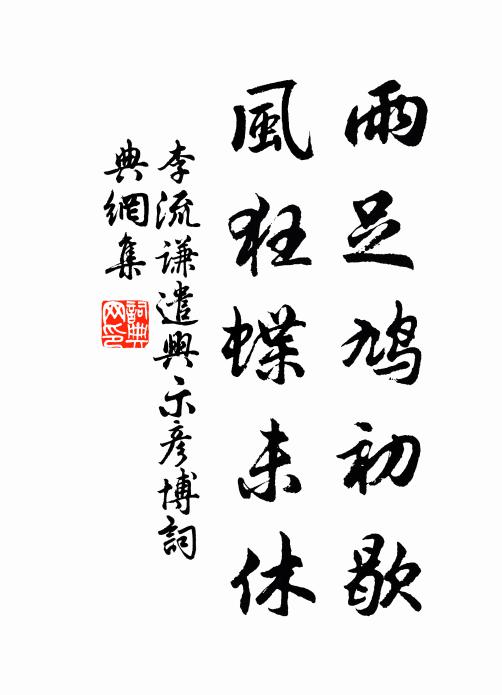 雨足鳩初歇
風狂蝶未休
李流謙遣興示彥博詞
典網集
詞典網印